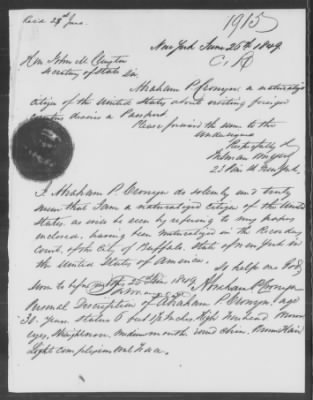 Recd 28th June.
1915
New York June 26th 1849
Hon John M Clayton
Secretary of State
Sir.
Abraham P Cronyn a naturalized
citizen of the United States about visiting foreign
countries desires a Passport.
Please forward the same to the
undersigned
Respectfully
23 Pine St New York.
I Abraham P. Cronyn do solemnly and truly
swear that I am a naturalized citizen of the United
States, as will be seen by refering to my papers
enclosed, having been naturalized in the Recorders
Court, of the City of Buffalo, State of New York in
the United States of America.
So help me God
Sworn to before me this 25th June 1849
Abraham P Cronyn
Personal Description of Abraham P Cronyn age
30 years stature 5 feet Inches High Forehead Brown
eyes, Straight nose medium mouth round chin. Brown Hair
Light complexion oval Face.